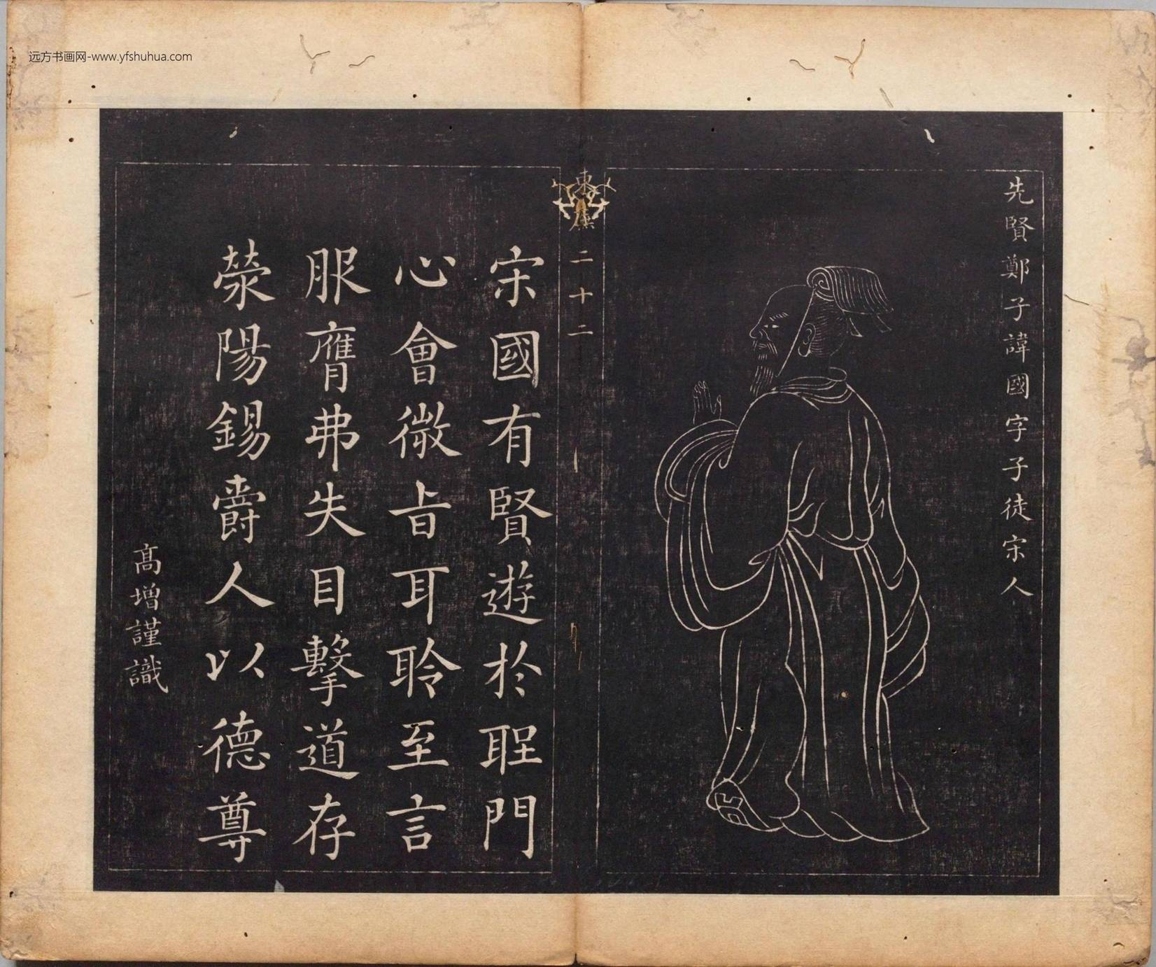 远方书画网-www.yfshuhua.com
先賢鄭子諱國字子徒宋人
東廡二十二
宋國有賢遊於聖門
心會微旨耳聆至言
服膺弗失目擊道存
滎陽錫爵人以德尊
高增謹識